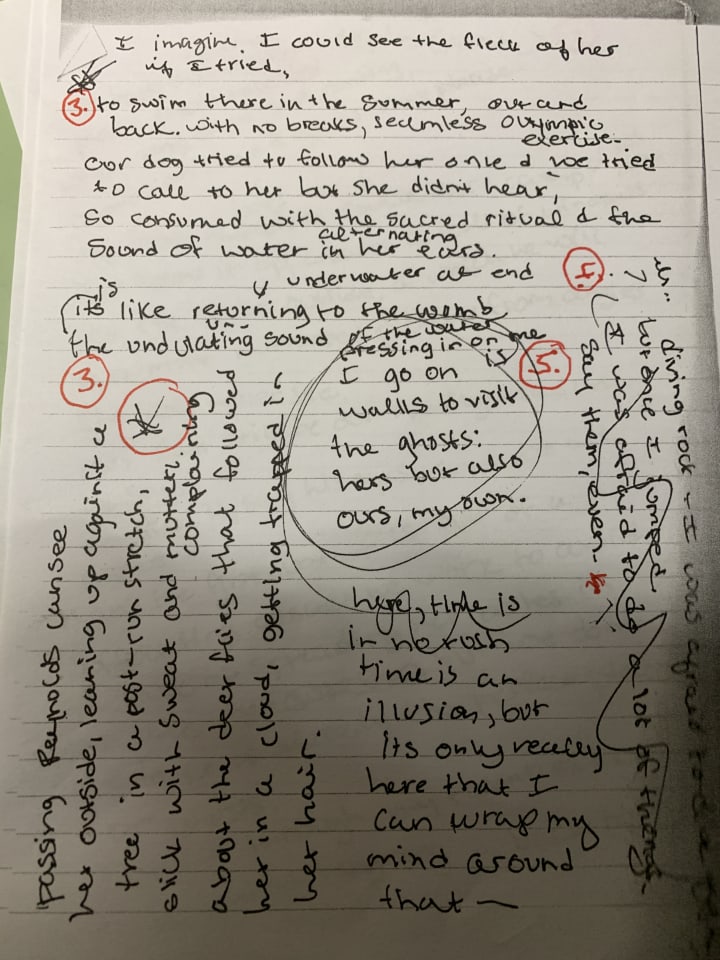 I imagine. I could see the fleck of her
if I tried,
3. to swim there in the summer, out and
back. with no breaks, seamless Olympic
exercise.
Our dog tried to follow her once & we tried
to call to her but she didn't hear,
so consumed with the sacred ritual & the
alternating
sound of water in her ears.
underwater at end
is
its like returning to the womb
the undulating sound of the water
pressing in on me
is
3.
5.
I go on
walks to visit
the ghosts:
hers but also
ours, my own.
here, time is
in no rush
time is an
illusion, but
its only really
here that I
can wrap my
mind around
that —
Passing Reynolds can see
her outside, leaning up against a
tree in a post-run stretch,
slick with sweat and
complaining
about the deer flies that followed
her in a cloud, getting trapped in
her hair.
diving rock + I was afraid to
but once I jumped
I was afraid to do a lot of things.
say them, even-